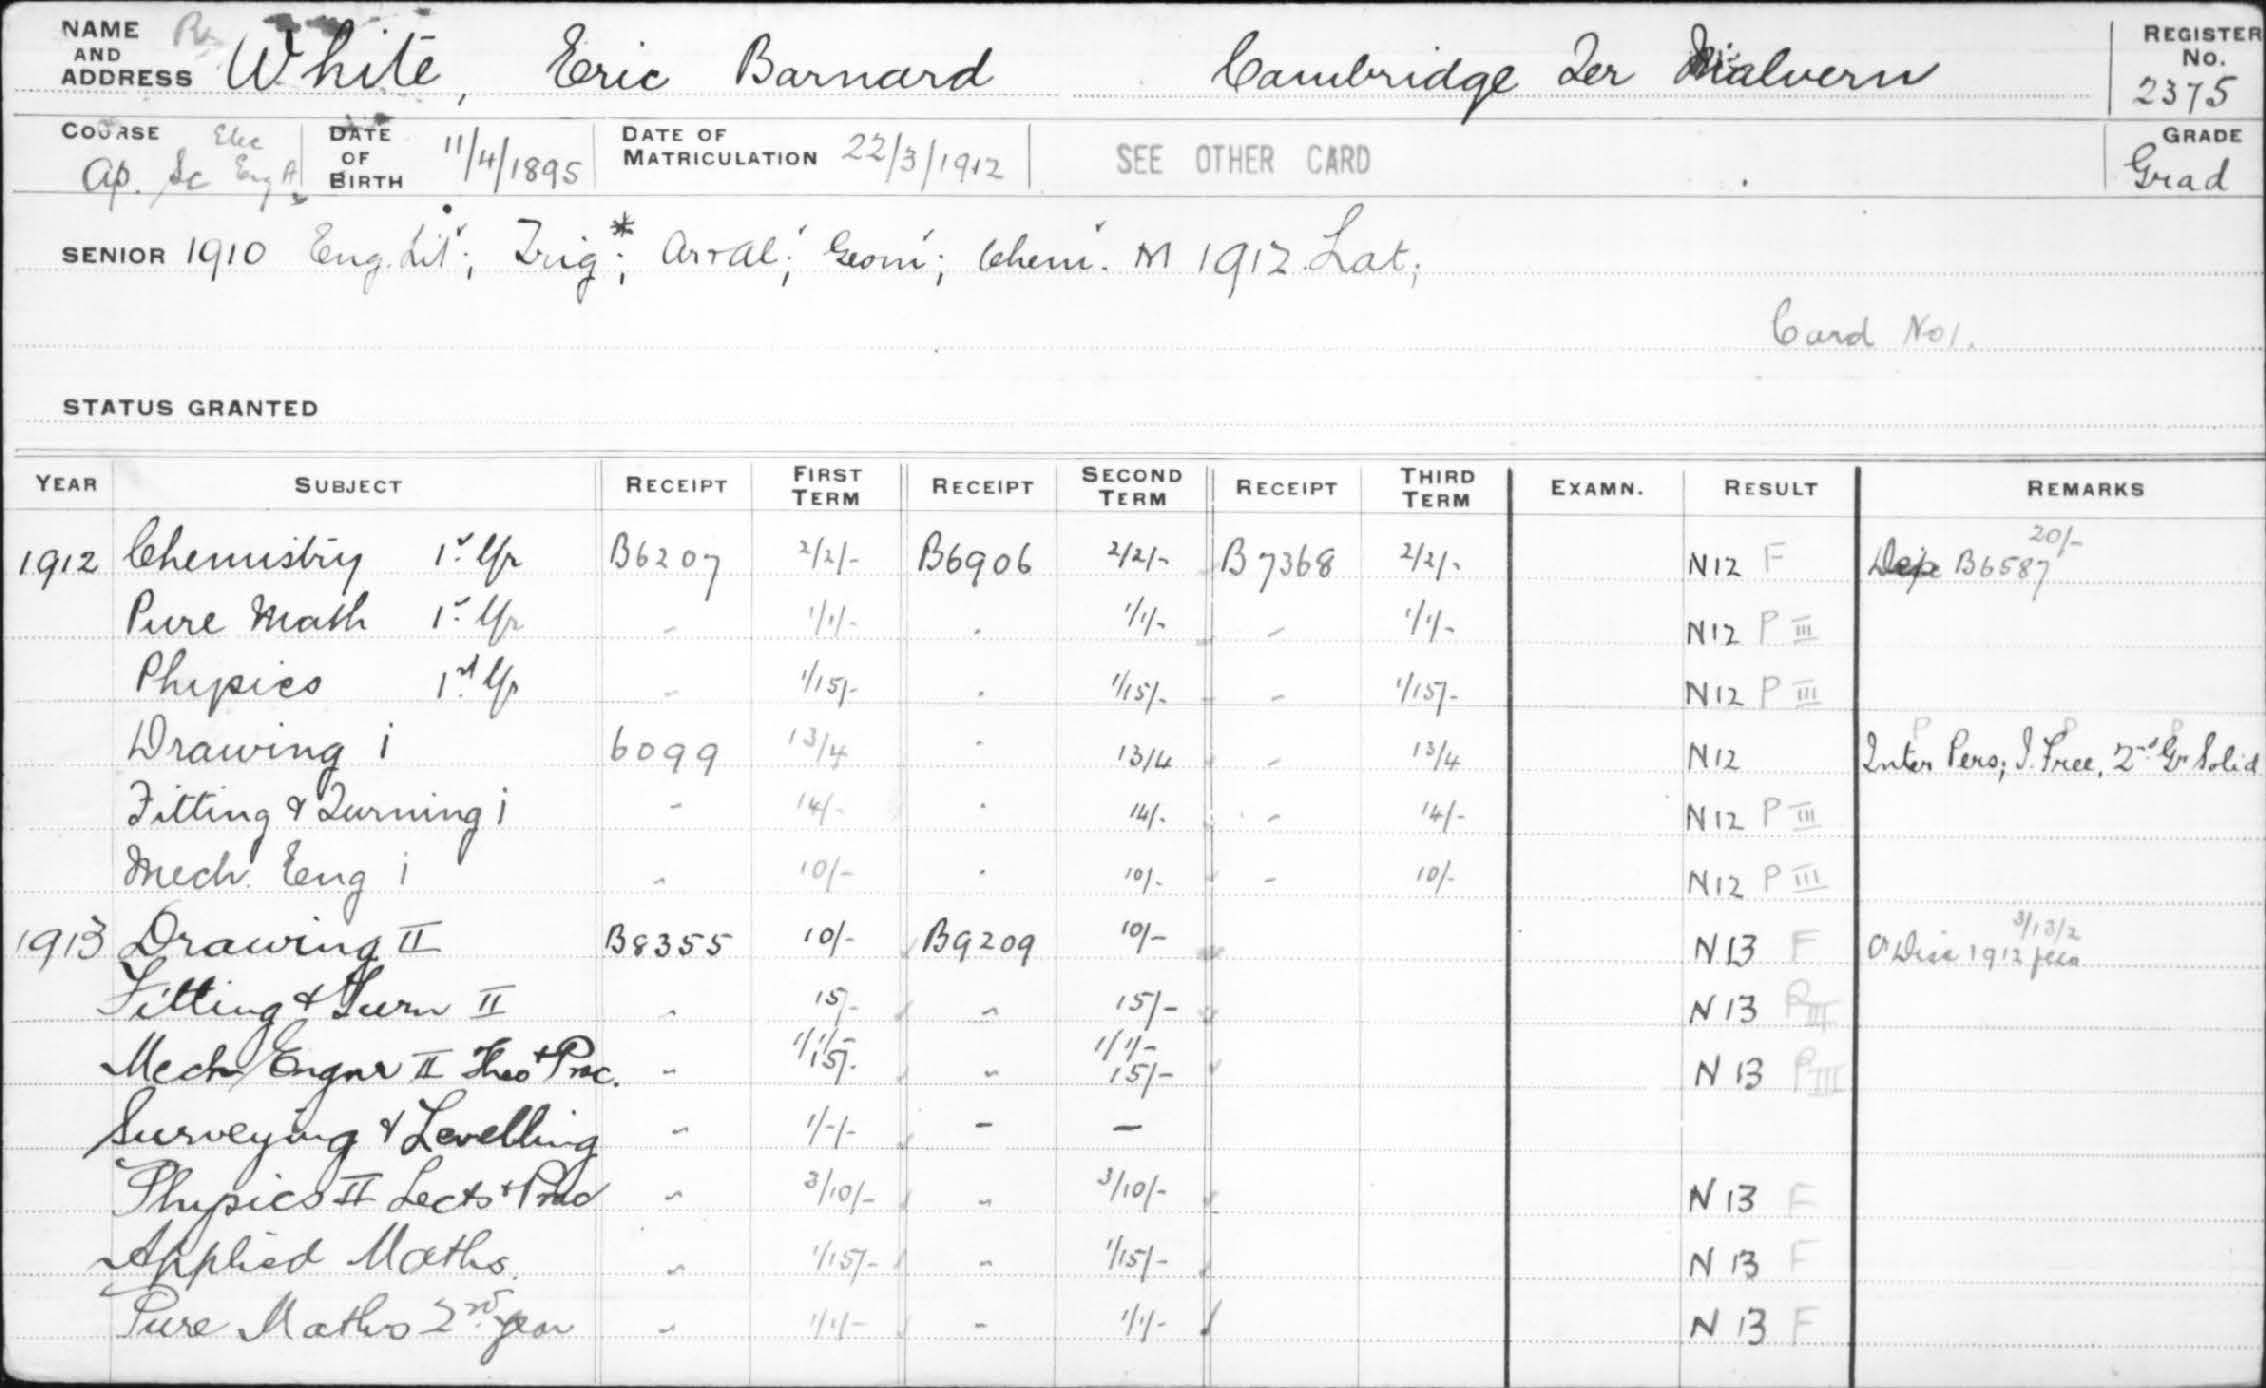 NAME AND ADDRESS White, Eric Barnard Cambridge Ter Malvern REGISTER No. 2375
COURSE Ap. Sc Elec Eng A DATE OF BIRTH 11/4/1895 DATE OF MATRICULATION 22/3/1912 SEE OTHER CARD GRADE Grad
SENIOR 1910 Eng. Lit; Trig*; Ar+Al; Geom; Chem. M 1912 Lat;
Card No 1.
STATUS GRANTED
YEAR SUBJECT RECEIPT FIRST TERM RECEIPT SECOND TERM RECEIPT THIRD TERM EXAMN. RESULT REMARKS
1912 Chemistry 1st Yr B6207 2/2/- B6906 2/2/- B7368 2/2/- N12 F B6587 20/-
Pure Math 1st Yr - 1/1/- . 1/1/- - 1/1/- N12 P III
Physics 1st Yr - 1/15/- . 1/15/- - 1/15/- N12 P III
Drawing i 6099 13/4 . 13/4 - 13/4 N12 Inter Pers; I. Free, 2nd Gr Solid P P P
Fitting & Turning i - 14/- . 14/- - 14/- N12 P III
Mech. Eng i - 10/- . 10/- - 10/- N12 P III
1913 Drawing II B8355 10/- B9209 10/- N13 F 1912 fees 3/13/2
Fitting & Turn II - 15/- - 15/- N13 P III
Mech Engnr II Theo + Prac. - 1/1/- 15/- - 1/1/- 15/- N13 P III
Surveying & Levelling - 1/-/- - -
Physics II Lects + Prac - 3/10/- - 3/10/- N13 F
Applied Maths. - 1/15/- - 1/15/- N13 F
Pure Maths 2nd year - 1/1/- - 1/1/- N13 F